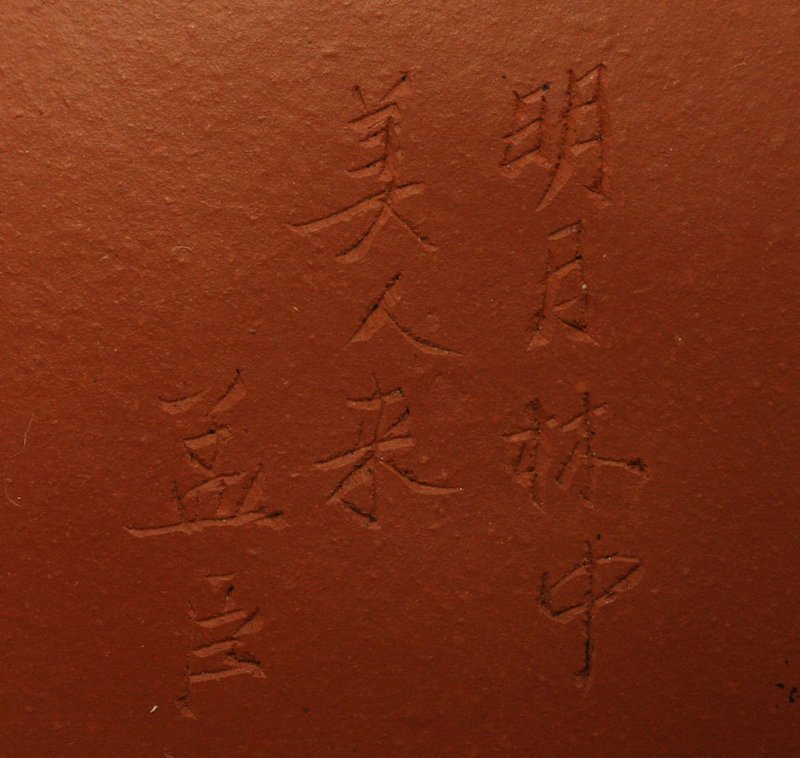 明月林中
美人来
孟臣